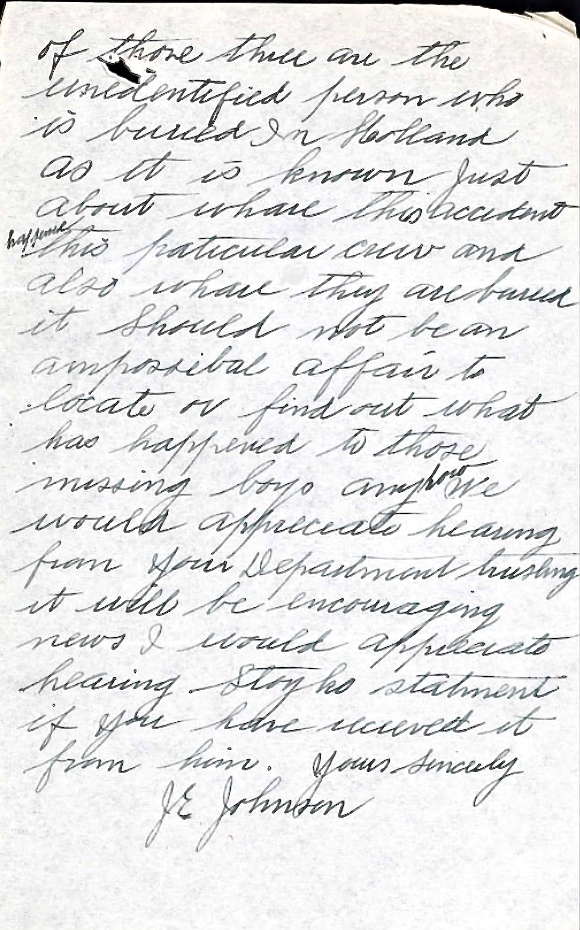 of those three are the
unedentified person who
is buried In Holland
as it is known Just
about whare this accident
happene
this paticular crew and
also whare they are buried
it should not be an
ampossibal affair to
locate or find out what
has happened to those
missing boys anyhow We
would appreciate hearing
from Your Department trusting
it will be encouraging
news I would appreciate
hearing Stoyko statment
if you have recieved it
from him. Yours Sincerly
J E Johnson